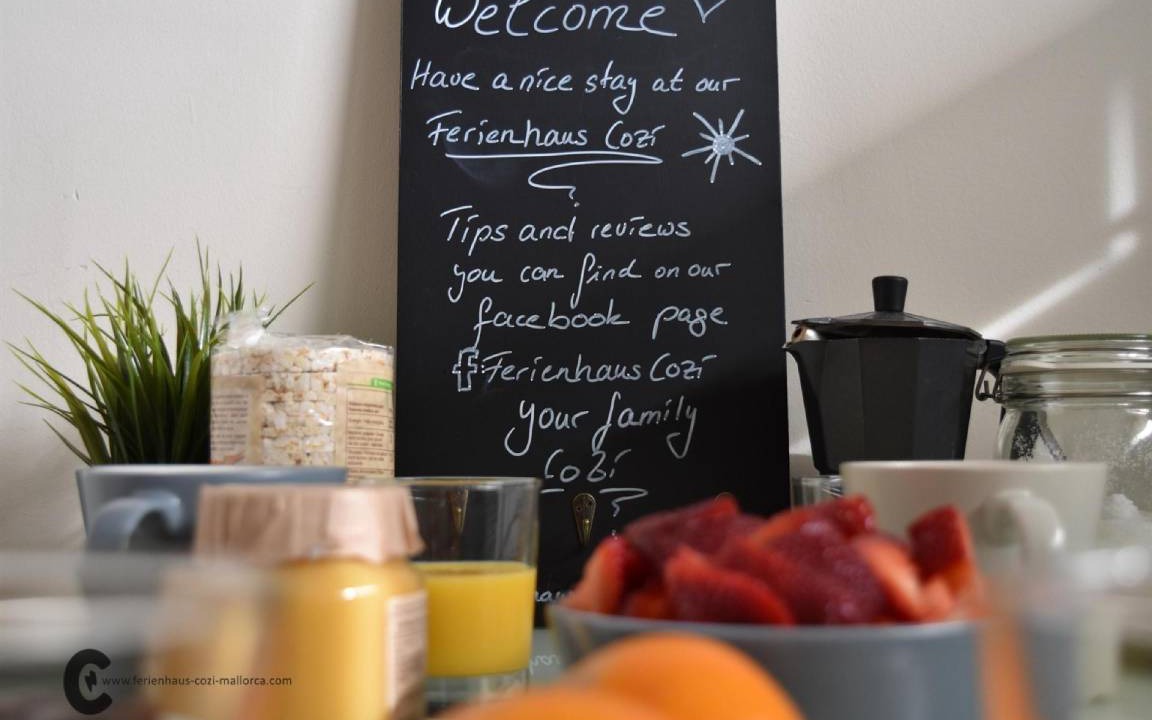 Welcome
Have a nice stay at our
Ferienhaus Cozi
Tips and reviews
you can find on our
facebook page
f: Ferienhaus Cozi
your family
Cozi
www.ferienhaus-cozi-mallorca.com